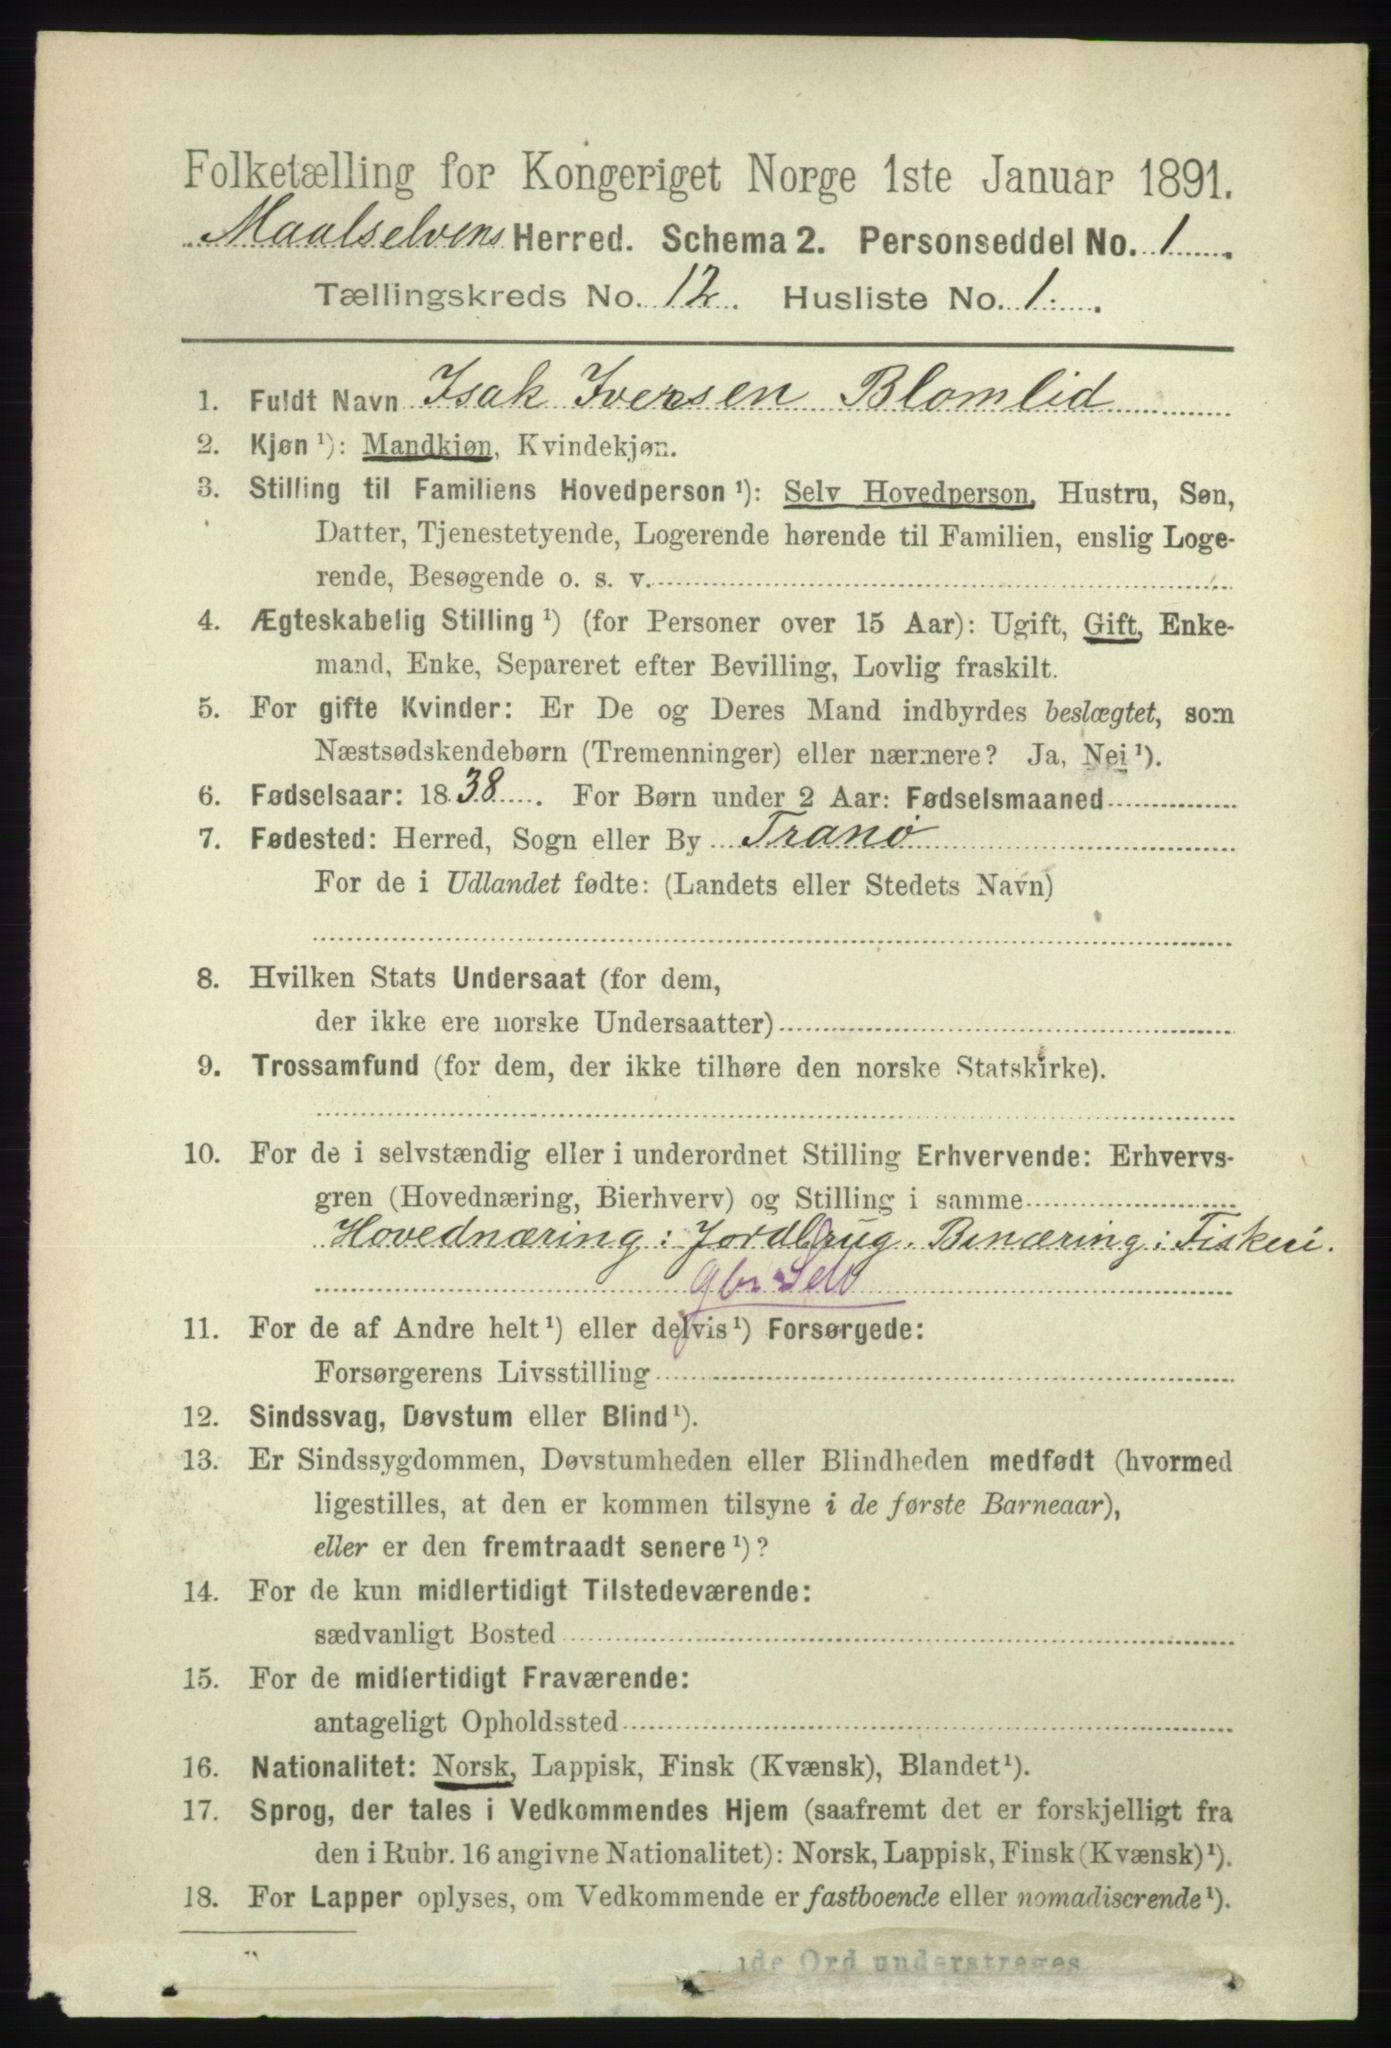 Folketælling for Kongeriget Norge 1ste Januar 1891.
Maalselvens Herred. Schema 2. Personseddel No. 1
Tællingskreds No. 12. Husliste No. 1.
1. Fuldt Navn Isak Iversen Blomlid
2. Kjøn ¹): Mandkjøn, Kvindekjøn.
3. Stilling til Familiens Hovedperson ¹): Selv Hovedperson, Hustru, Søn,
Datter, Tjenestetyende, Logerende hørende til Familien, enslig Loge-
rende, Besøgende o. s. v.
4. Ægteskabelig Stilling ¹) (for Personer over 15 Aar): Ugift, Gift, Enke-
mand, Enke, Separeret efter Bevilling, Lovlig fraskilt.
5. For gifte Kvinder: Er De og Deres Mand indbyrdes beslægtet, som
Næstsødskendebørn (Tremenninger) eller nærmere? Ja, Nei ¹).
6. Fødselsaar: 1838. For Børn under 2 Aar: Fødselsmaaned
7. Fødested: Herred, Sogn eller By Tranø
For de i Udlandet fødte: (Landets eller Stedets Navn)
8. Hvilken Stats Undersaat (for dem,
der ikke ere norske Undersaatter)
9. Trossamfund (for dem, der ikke tilhøre den norske Statskirke).
10. For de i selvstændig eller i underordnet Stilling Erhvervende: Erhvervs-
gren (Hovednæring, Bierhverv) og Stilling i samme
Hovednæring: Jordbrug. Binæring: Fiskeri.
gbr Selv
11. For de af Andre helt ¹) eller delvis ¹) Forsørgede:
Forsørgerens Livsstilling
12. Sindssvag, Døvstum eller Blind ¹).
13. Er Sindssygdommen, Døvstumheden eller Blindheden medfødt (hvormed
ligestilles, at den er kommen tilsyne i de første Barneaar),
eller er den fremtraadt senere ¹)?
14. For de kun midlertidigt Tilstedeværende:
sædvanligt Bosted
15. For de midlertidigt Fraværende:
antageligt Opholdssted
16. Nationalitet: Norsk, Lappisk, Finsk (Kvænsk), Blandet ¹).
17. Sprog, der tales i Vedkommendes Hjem (saafremt det er forskjelligt fra
den i Rubr. 16 angivne Nationalitet): Norsk, Lappisk, Finsk (Kvænsk) ¹).
18. For Lapper oplyses, om Vedkommende er fastboende eller nomadiserende ¹).
Ord understreges